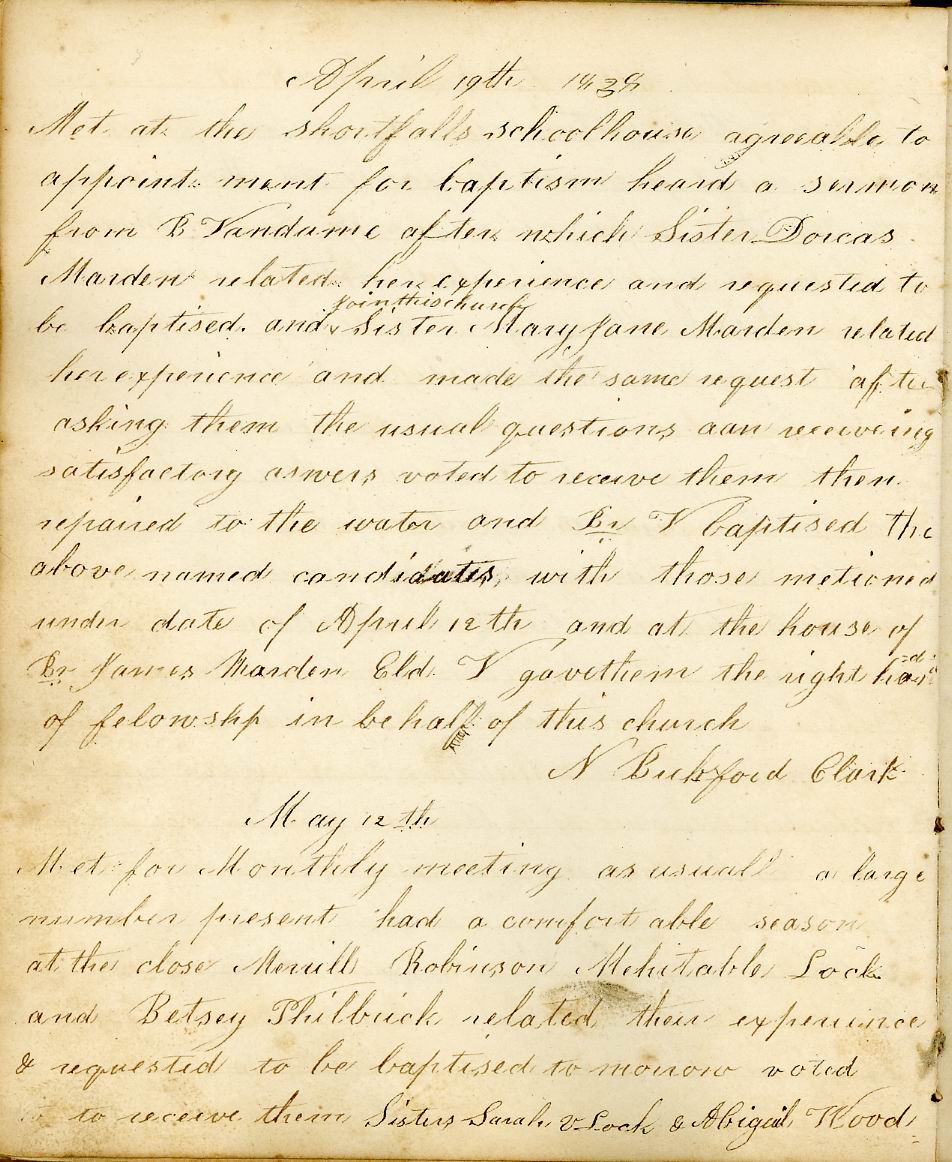 April 19th 1838
Met at the shortfalls schoolhouse agreeable to
appoint ment for baptism heard a sermon
from B Vandame after which Sister Dorcas
Marden related her experience and requested to
join this church
be baptised. and Sister Mary Jane Marden related
her experience and made the same request after
asking them the usual questions aan receiveing
satisfactory aswers voted to receive them then
repaired to the water and Br V baptised the
above named candidates, with those metioned
under date of April 12th and at the house of
Br James Marden Eld. V gave them the right hand
of felowshp in behalf of this church
N Bickford Clark
May 12th
Met for Monthly meeting as usual a large
number present had a comfortable season
at the close Merrill Robinson Mehitable Lock
and Betsey Philbrick related their experience
& requested to be baptised to morrow voted
to receive them Sisters Sarah Lock & Abigail Wood